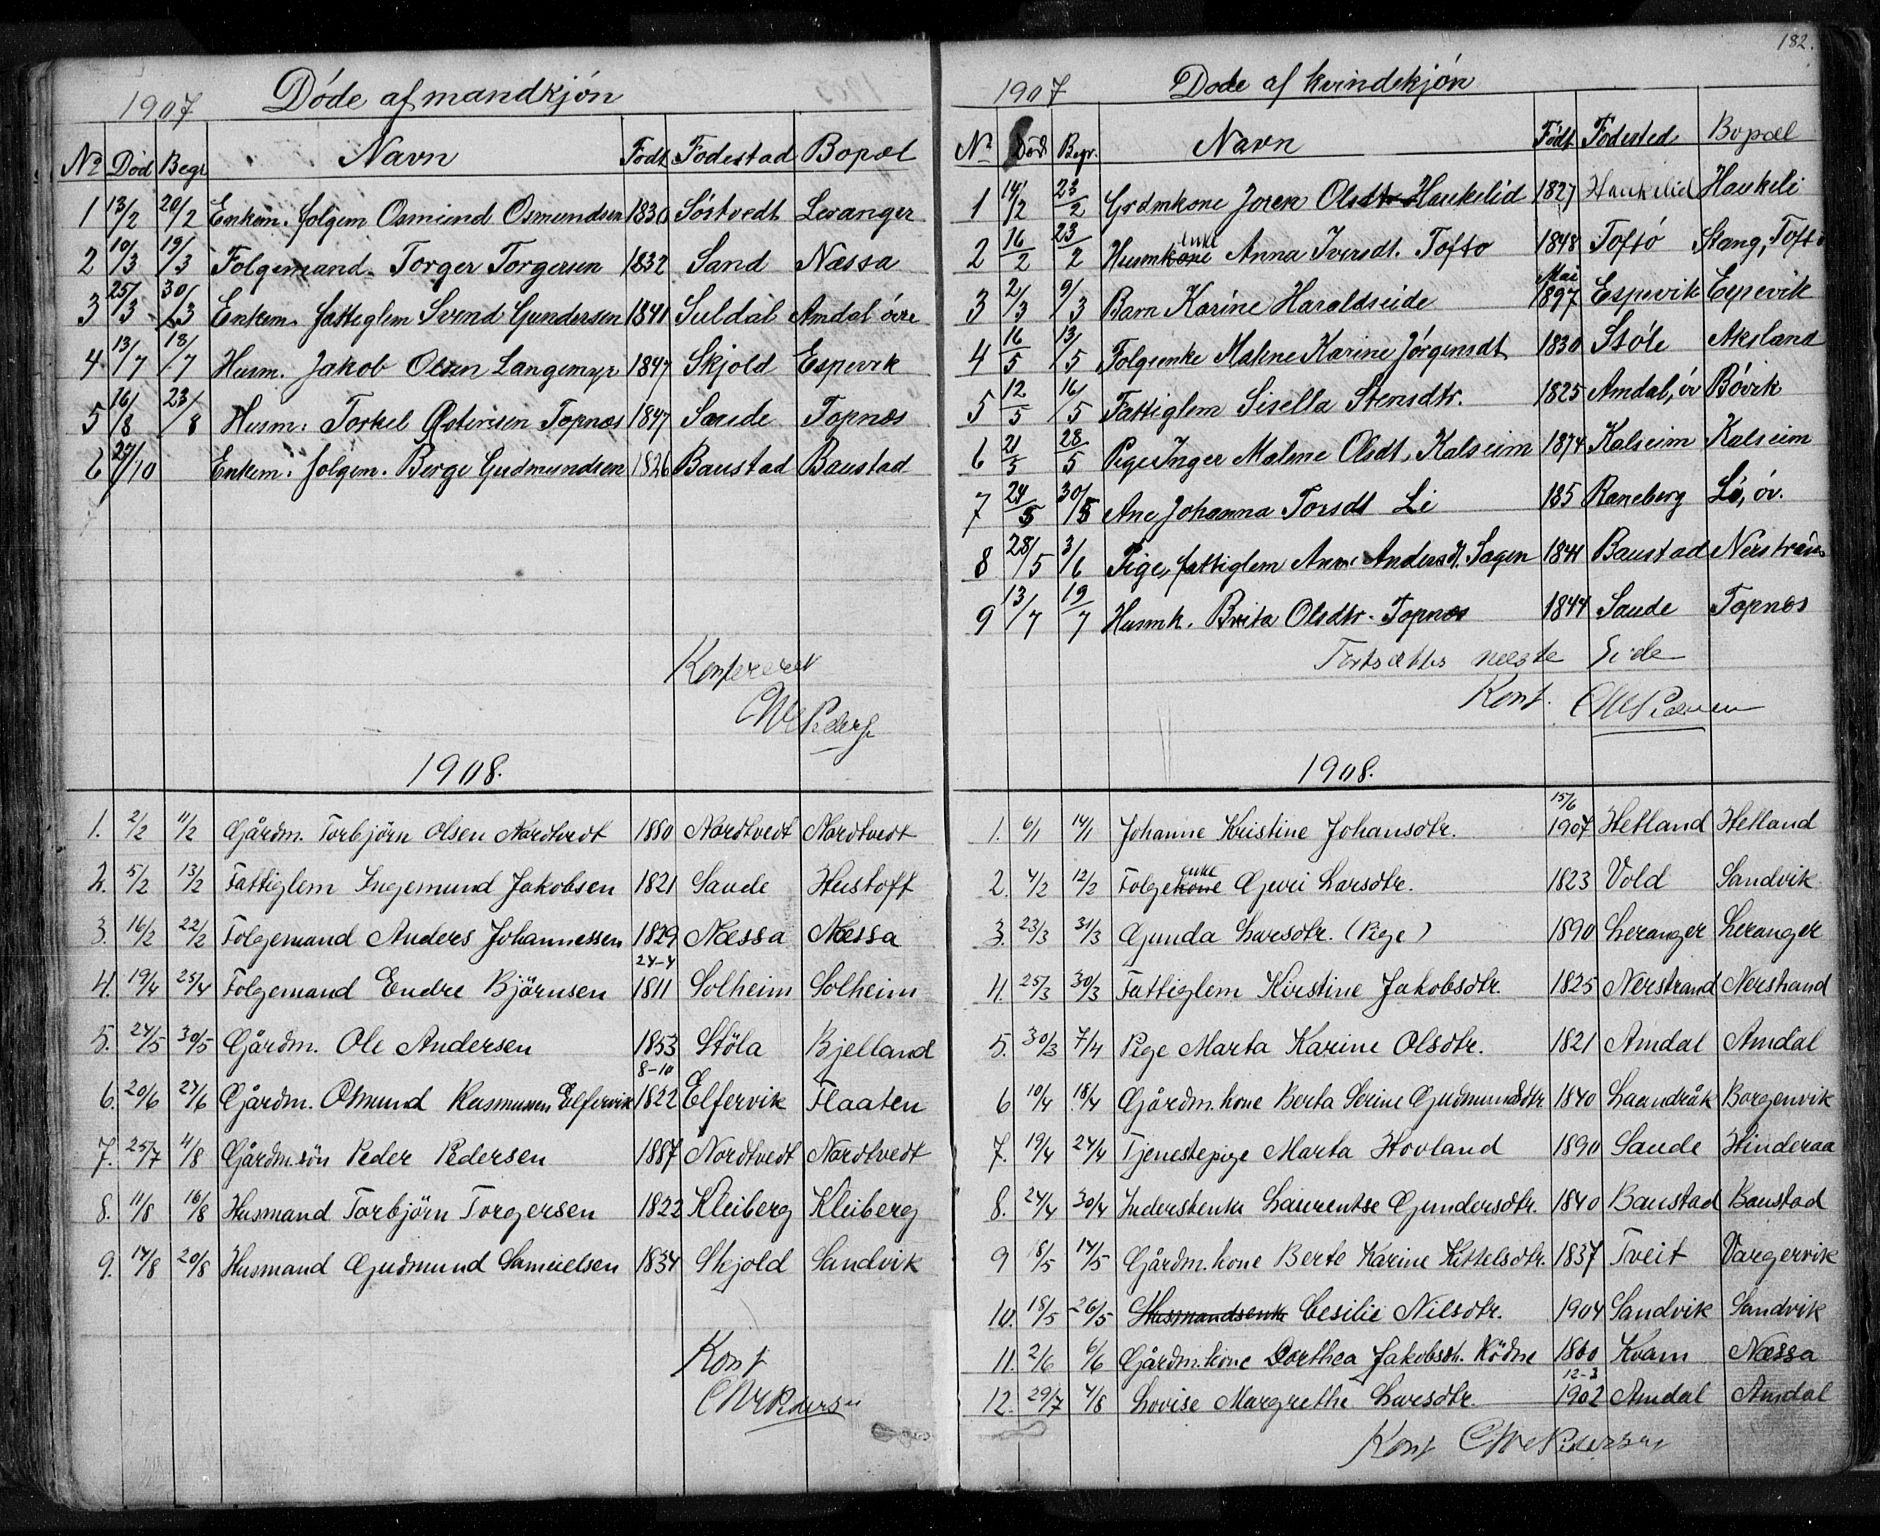 1907 Döde af mandkjön
No Död Begr Navn Födt Fodestad Bopæl
1 13/2 20/2 Enkem. folgem Osmund Osmundsen 1830 Söstvedt Leranger
2 10/3 19/3 Folgemand. Torger Torgersen 1832 Sand Næssa
3 25/3 30/3 Enkem. fattiglem Svend Gundersen 1841 Suldal Amdal övre
4 13/7 18/7 Husm. Jakob Olsen Langemyr 1847 Skjold Espevik
5 16/8 23/8 Husm. Torkel Østensen Topnæs 1847 Saude Topnæs
6 29/10 Enkem. folgem. Berge Gudmundsen 1826 Baustad Baustad
Konfereret
1908.
1. 2/2 11/2 Gårdm. Torbjörn Olsen Nordtvedt 1880 Nordtvedt Nordtvedt
2. 5/2 13/2 Fattiglem Ingemund Jakobsen 1821 Saude Hustoft
3. 16/2 22/2 Folgemand Anders Johannessen 1829 Næssa Næssa
4. 19/4 25/4 Folgemand Endre Björnsen 24-4 1811 Solheim Solheim
5. 24/5 30/5 Gårdm. Ole Andersen 1853 Stöla Bjelland
6. 20/6 27/6 Gårdm. Osmund Rasmussen Elfervik 8-10 1822 Elfervik Flaaten
7. 25/7 4/8 Gårdm.sön Peder Pedersen 1887 Nordtvedt Nordtvedt
8. 11/8 16/8 Husmand Torbjörn Torgersen 1822 Kleiberg Kleiberg
9. 14/8 20/8 Husmand Gudmund Samuelsen 1834 Skjold Sandvik
Konf
182.
1907 Dode af kvindekjön
No Död Begr. Navn Födt Födested Bopæl
1 14/2 23/2 Grdmkone Joren Olsdtr Haukelid 1827 Haukelid Haukeli
2 16/2 23/2 Husmkone enke Anna Iversdt. Tofto 1848 Toftö Stang, Toftö
3 2/3 9/3 Barn Karine Haraldseide Mai 1897 Espevik Espevik
4 16/5 13/5 Folgeenke Malene Karine Jörgensdt 1830 Stöle Aksland
5 12/5 16/5 Fattiglem Sisella Stensdtr. 1825 Amdal, öv Bövik
6 21/5 28/5 Pige Inger Maline Olsdt. Kalseim 1874 Kalseim Kalseim
7 24/5 30/5 Ane Johanna Torsdt Li 185 Raneberg Li, öv.
8 28/5 3/6 Pige, fattiglem Anne Andersdt. Sagen 1841 Baustad Nerstrand
9 13/7 19/7 Husmk. Brita Olsdtr. Topnæs 1844 Saude Topnæs
Fortsættes næste Side
Konf.
1908.
1. 6/1 14/1 Johanne Kristine Johansdtr. 15/6 1907 Hetland Hetland
2. 4/2 12/2 Folgekone enke Guri Larsdtr. 1823 Vold Sandvik
3. 23/3 31/3 Gunda Larsdtr. (Pige) 1890 Leranger Leranger
4. 25/3 30/3 Fattiglem Kirstine Jakobsdtr. 1825 Nerstrand Nerstrand
5. 30/3 7/4 Pige Marta Karine Olsdtr. 1821 Amdal Amdal
6 10/4 18/4 Gårdm.kone Berta Serine Gudmundsdtr 1840 Laandråk Borgenvik
7. 19/4 24/4 Tjenestepige Marta Hovland 1890 Saude Hinderaa
8. 24/4 30/4 Inderstenke Laurentse Gundersdtr. 1840 Baustad Baustad
9 8/5 14/5 Gårdm.kone Berte Karine Kittelsdtr. 1837 Tveit Vargervik
10. 18/5 26/5 Husmandsenke Cesilie Nilsdtr. 1904 Sandvik Sandvik
11. 2/6 6/6 Gårdm.kone Dorthea Jakobsdtr. Födne 1860 Kvam Næssa
12. 29/7 4/8 Lovise Margrethe Larsdtr. 12-3 1902 Amdal Amdal
Konf